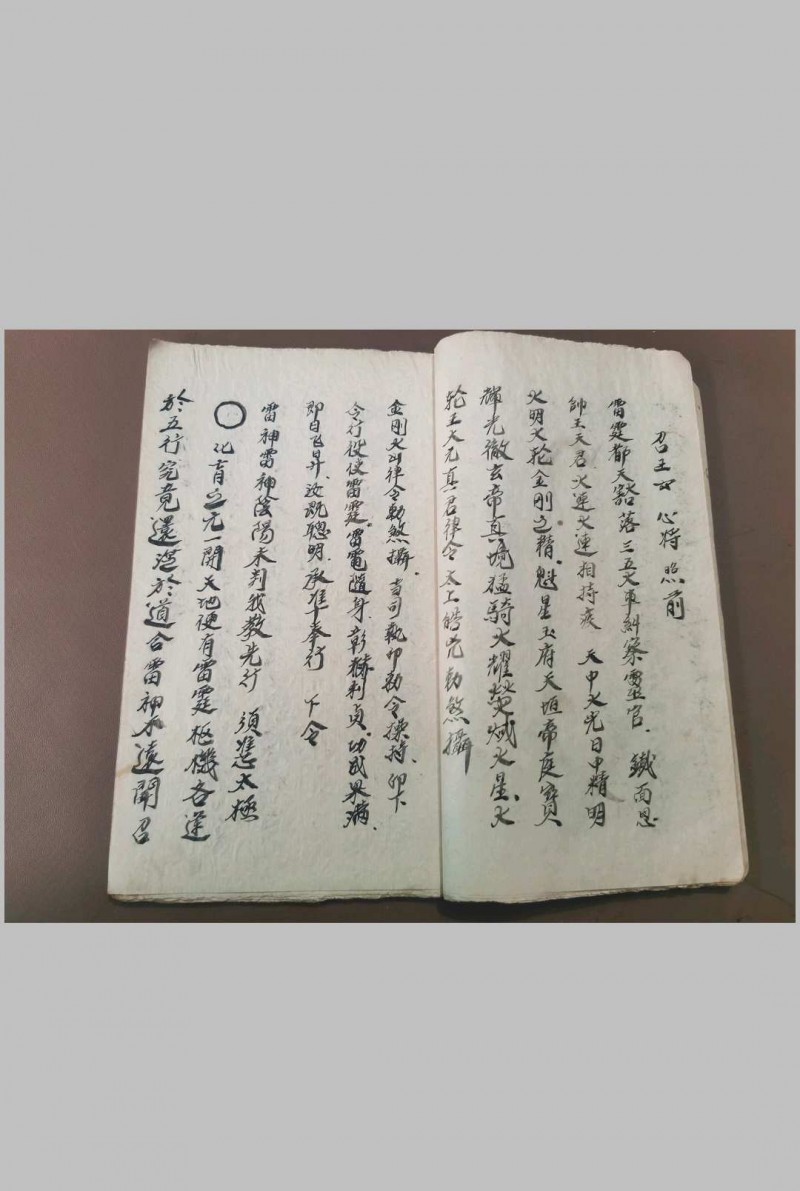 召王 心将 照前
雷霆都天豁落三五火車糾察靈官 鐵面恩
帥王天君火連火連相持疾 天中火光日中精明
火明火轮金刚之精魁星玉府天垣帝庭寶貝
輝光徹玄帝真境猛騎火耀熒熾火星火
轮王大元真君律令太上 勅煞攝
金剛火 律令勅煞攝当司執印勅令操持卯卜
令行役使雷霆雷電隨身彰 利貞功成果满
即白飞昇汝既聰明承准奉行 下令
雷神雷神陰陽未判我教先行 須憑太極
〇 化育之元一開天地便有雷霆枢機各逞
於五行究竟還 於道合雷神不遠開召